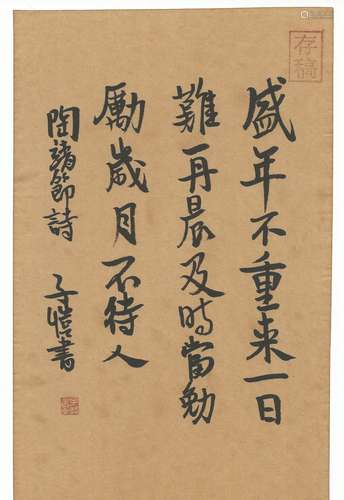 存稿
盛年不重来一日
難再晨及時當勉
勵歲月不待人
陶靖節詩 子愷書